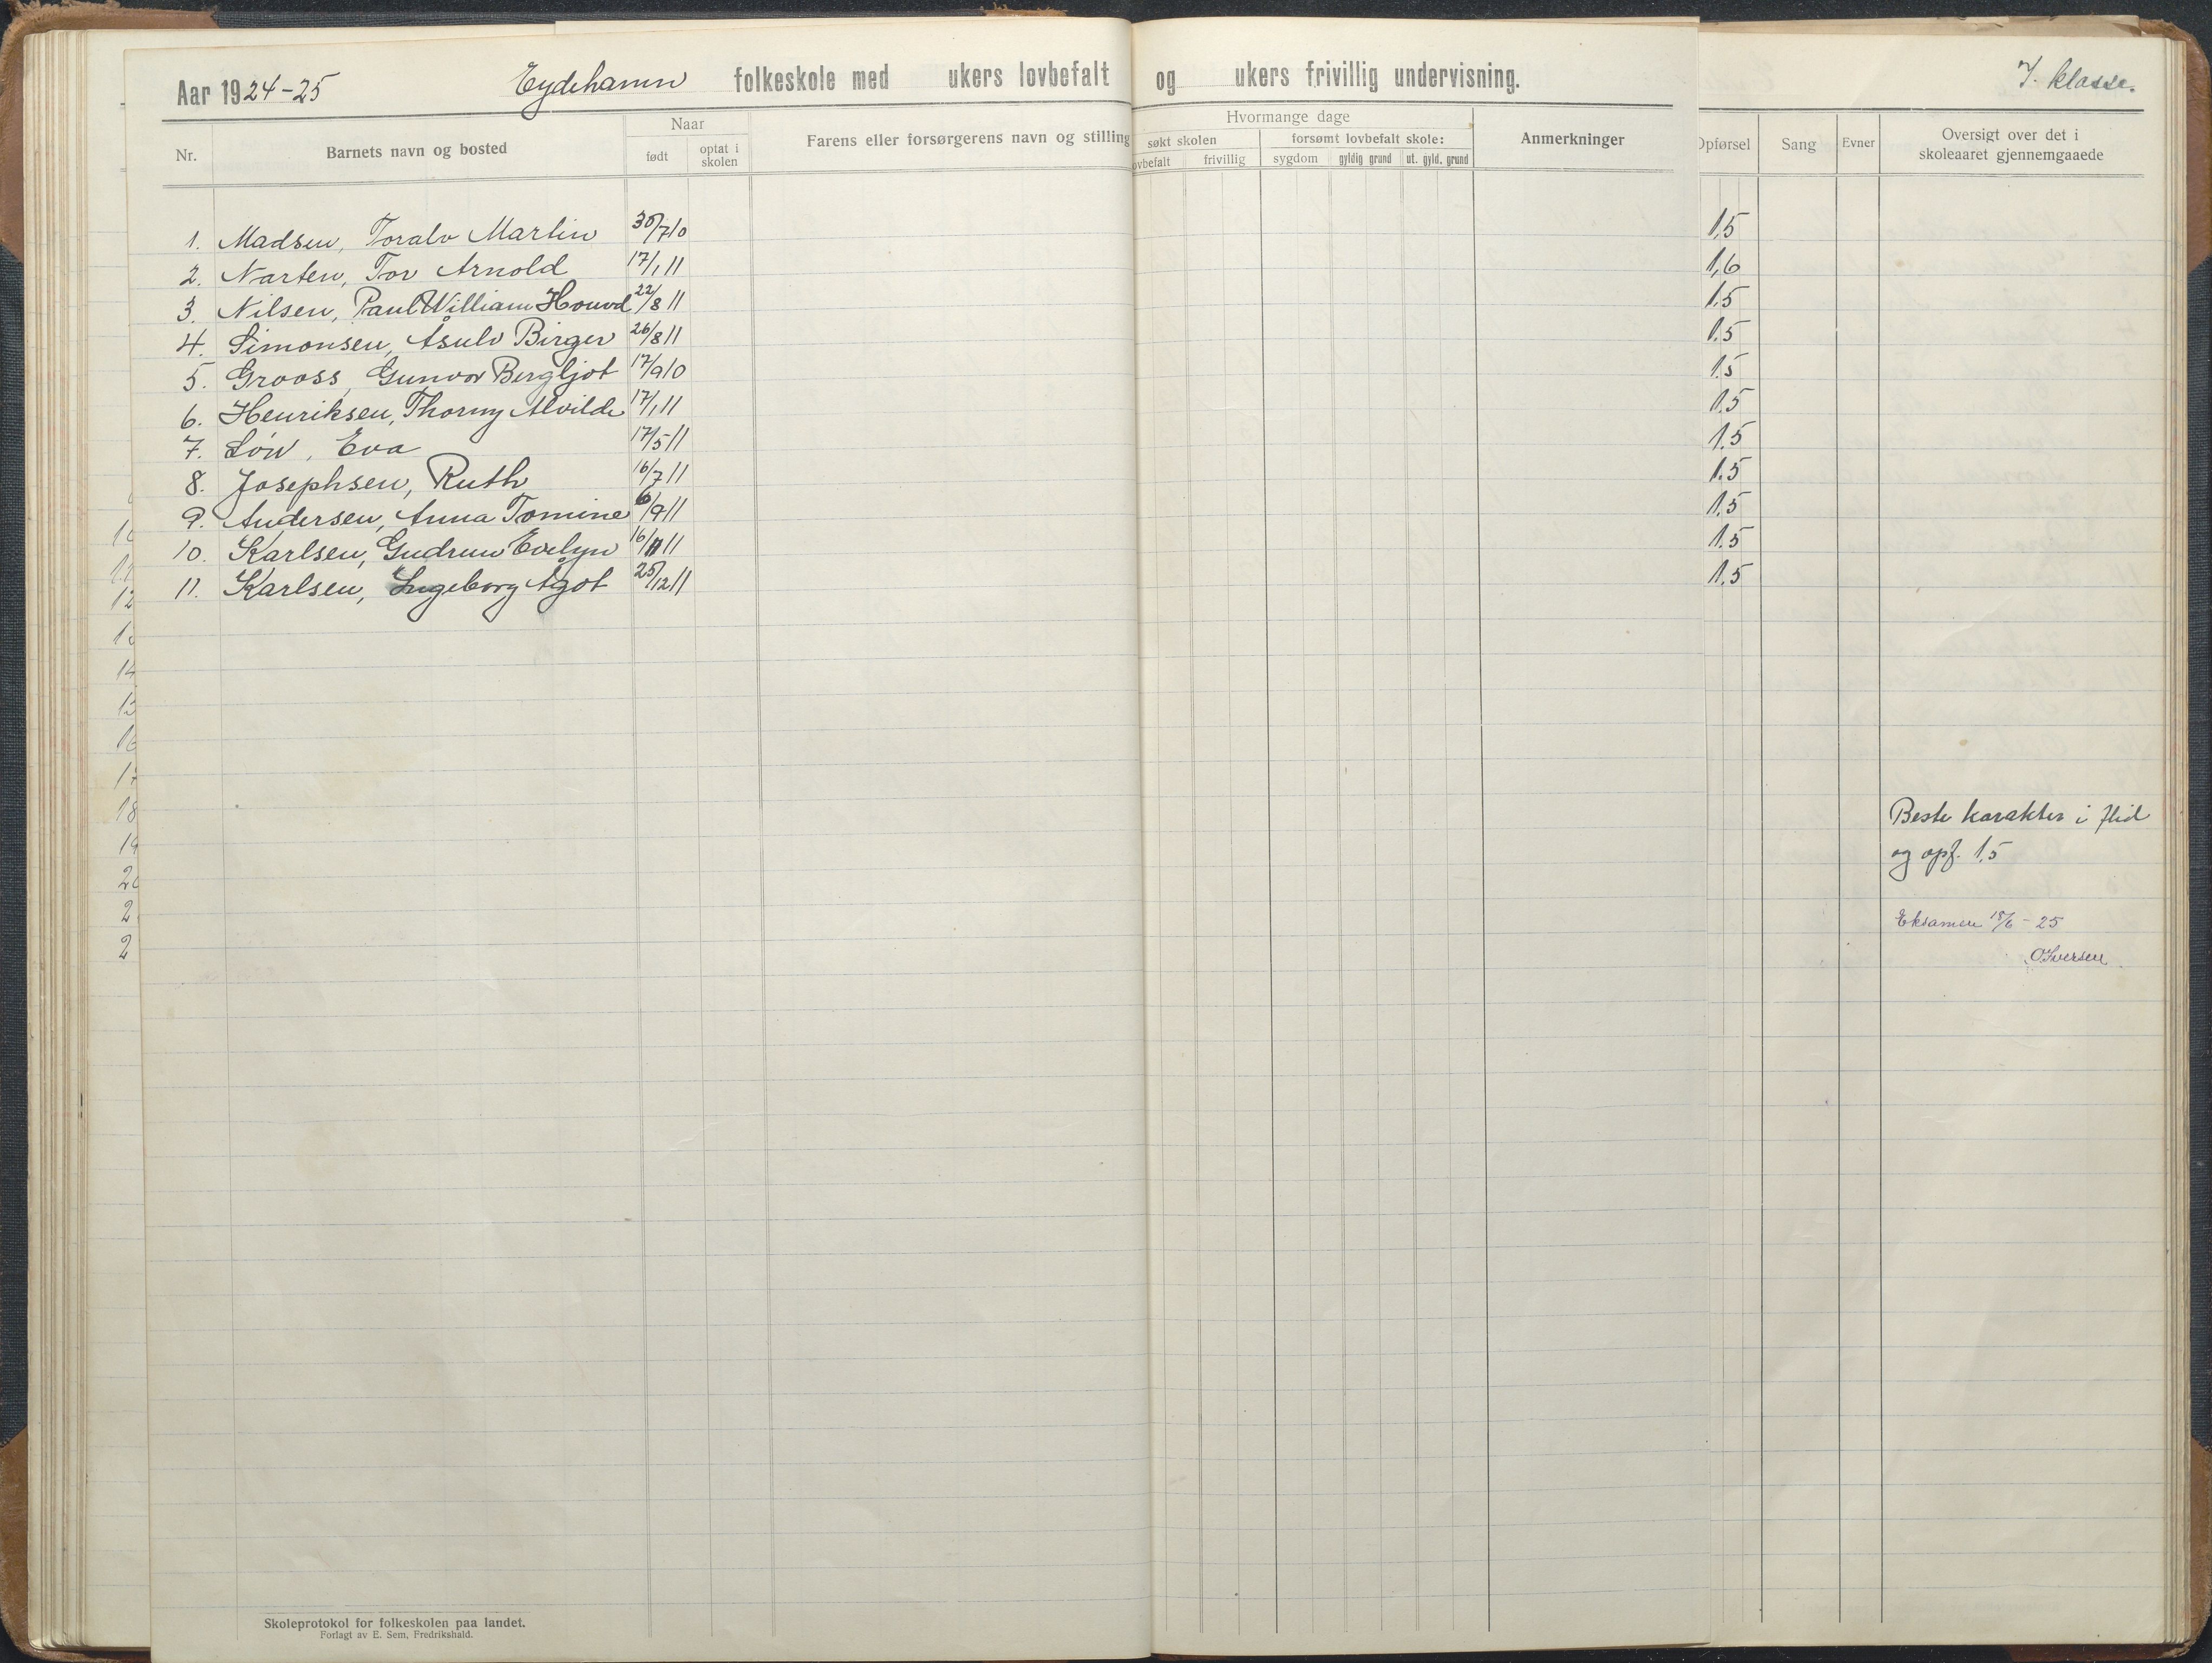 Aar 1924-25 Eydehamn folkeskole med ukers lovbefalt og ukers frivillig undervisning.
7. klasse.
Nr. Barnets navn og bosted Naar født optat i skolen Farens eller forsørgerens navn og stilling
Hvormange dage søkt skolen lovbefalt frivillig forsømt lovbefalt skole: sygdom gyldig grund ut. gyld. grund Anmerkninger
Opførsel Sang Evner Oversigt over det i skoleaaret gjennemgaaede
1. Madsen, Toralv Martin 30/7 10 1,5
2. Narten, Tor Arnold 17/1 11 1,6
3. Nilsen, Paul William 22/8 11 1,5
4. Simonsen, Åsulv Birger 26/8 11 1.5
5. Grooss, Gunvor Bergljot 17/9 10 1.5
6. Henriksen, Thorny Alvilde 17/1 11 1.5
7. Eva 17/5 11 1.5
8. Josephsen, Ruth 16/7 11 1.5
9. Andersen, Anna Tomine 6/9 11 1,5
10. Karlsen, Gudrun Evelyn 16/11 11 1.5
11. Karlsen, Ingeborg Ågot 25/12 11 1,5
Beste karakter i flid
og opf. 1,5
Eksamen 18/6 - 25
O Iversen
12
14
16
17
18
19
2
2
Skoleprotokol for folkeskolen paa landet.
Forlagt av E. Sem, Fredrikshald.